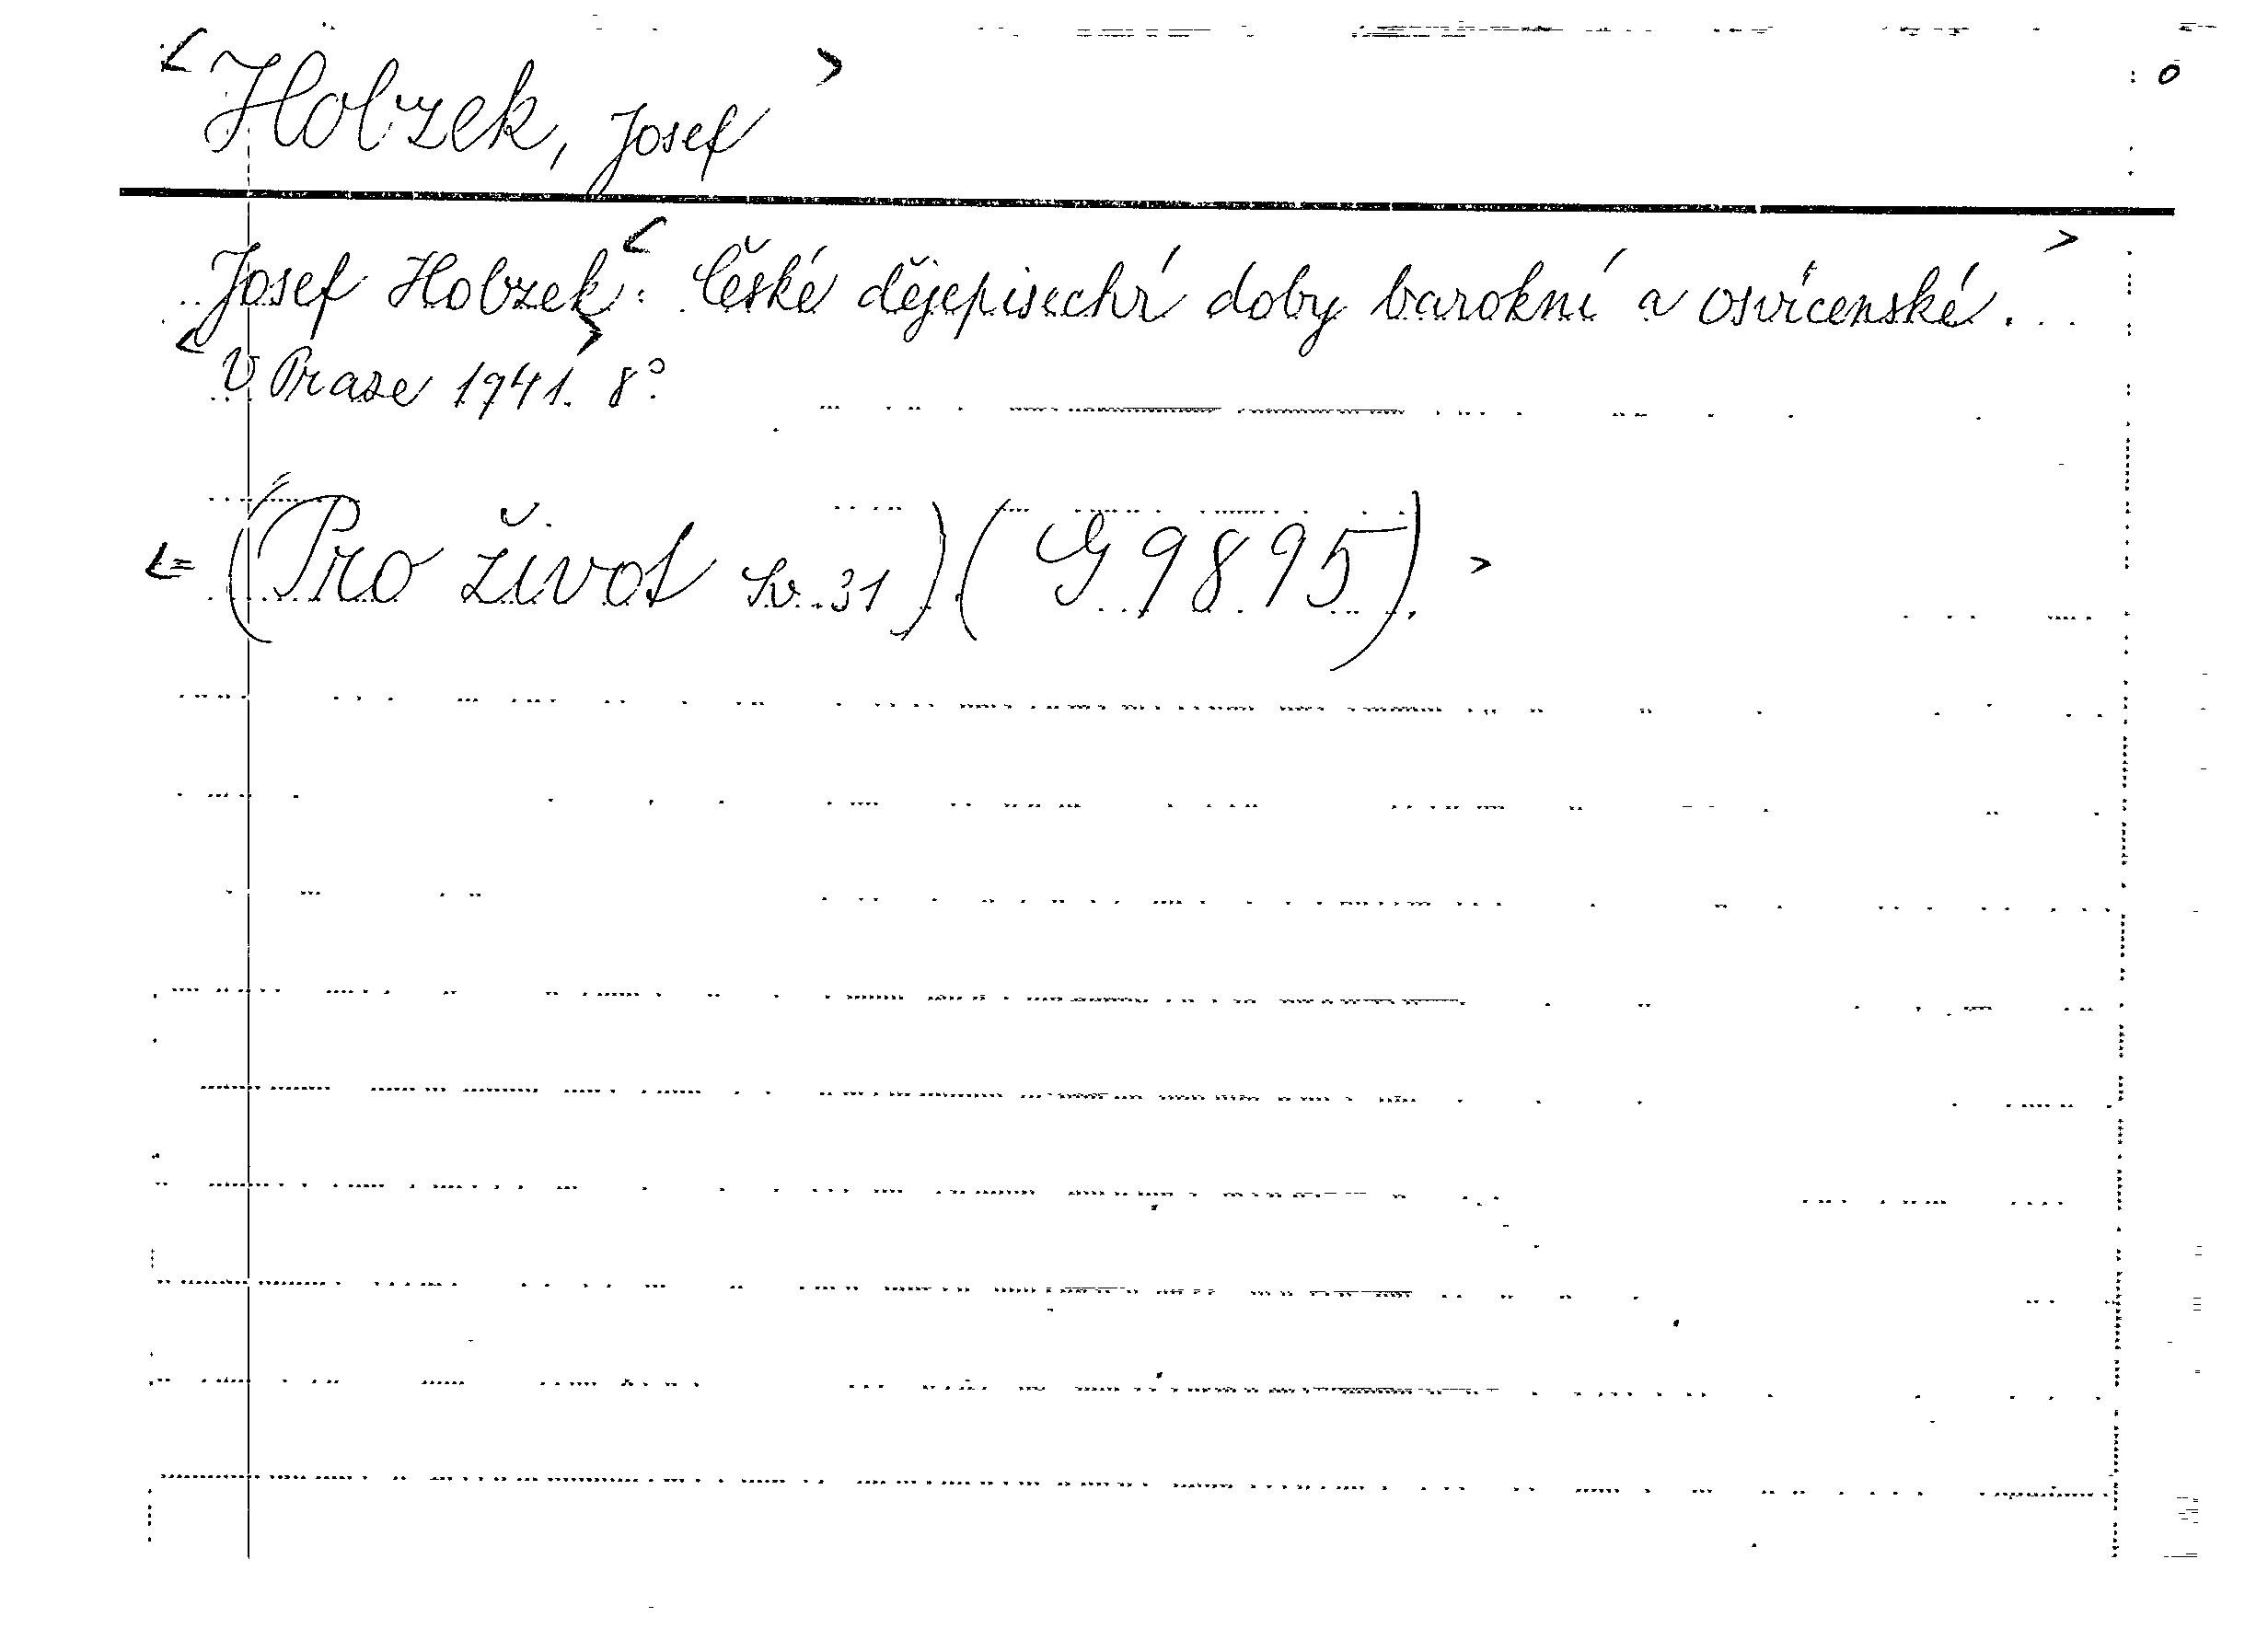 < Hobzek, Josef > o
Josef Hobzek: < České dějepisectví doby barokní a osvícenské. >
< V Praze 1941. > 8°
<= (Pro život Sv. 31) (G 9895). >